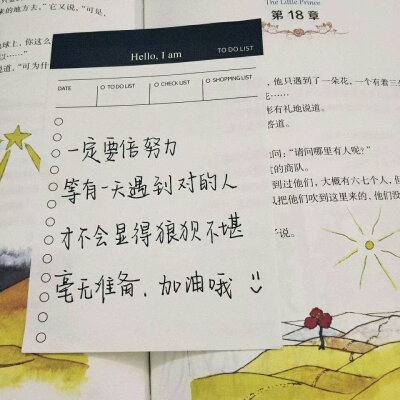 来的地方去。”它又说，“可是，
球上，你这么
……”
道，“可为什
The Little Prince
第 18 章
Hello, I am
TO DO LIST
DATE
TO DO LIST
CHECK LIST
SHOPPING LIST
一定要倍努力
等有一天遇到对的人
才不会显得狼狈不堪
毫无准备，加油哦
，他只遇到了一朵花，一个有着三
彬有礼地说道。
答道。
问：“请问哪里有人呢？”
的商队。
到过他们，大概有六七个人，但
风把他们吹到这里来的，他们没
子说。